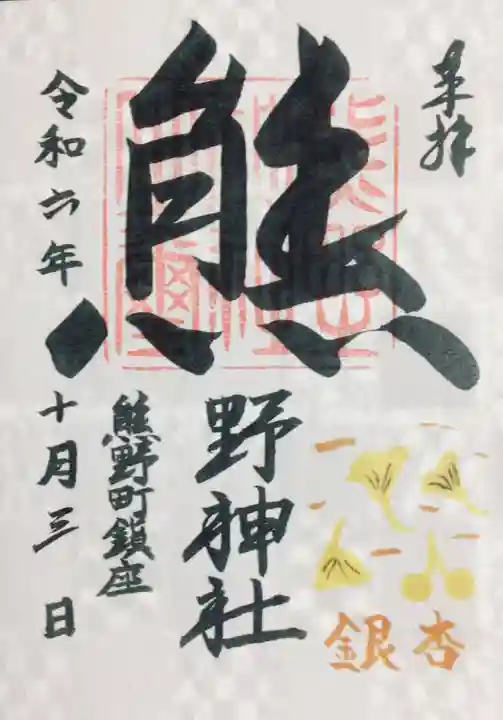 奉拝
熊野神社
熊野町鎮座
令和六年十月三日
銀杏